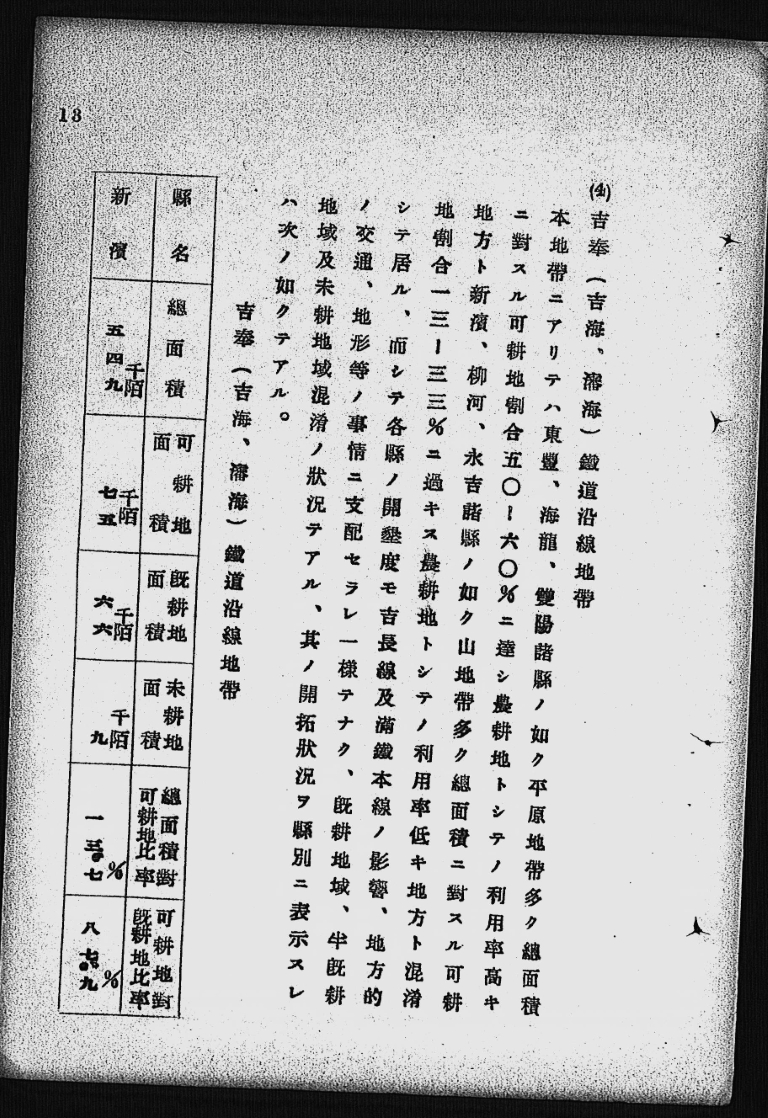 13
(4) 吉奉(吉海、瀋海)鐵道沿線地帶
本地帶ニアリテハ東豐、海龍、雙陽諸縣ノ如ク平原地帶多ク總面積
ニ對スル可耕地割合五〇ー六〇%ニ達シ農耕地トシテノ利用率高キ
地方ト新濱、柳河、永吉諸縣ノ如ク山地帶多ク總面積ニ對スル可耕
地割合一三ー三三%ニ過キス農耕地トシテノ利用率低キ地方ト混淆
シテ居ル、而シテ各縣ノ開墾度モ吉長線及滿鐵本線ノ影響、地方的
ノ交通、地形等ノ事情ニ支配セラレ一樣テナク、既耕地域、半既耕
地域及未耕地域混淆ノ狀況テアル、其ノ開拓狀況ヲ縣別ニ表示スレ
ハ次ノ如クテアル。
吉奉(吉海、瀋海)鐵道沿線地帶
縣名 總面積 可耕地面積 既耕地面積 未耕地面積 總面積對可耕地比率 可耕地對既耕地比率
新濱 五四九千陌 七五千陌 六六千陌 九千陌 一三・七% 八七・九%